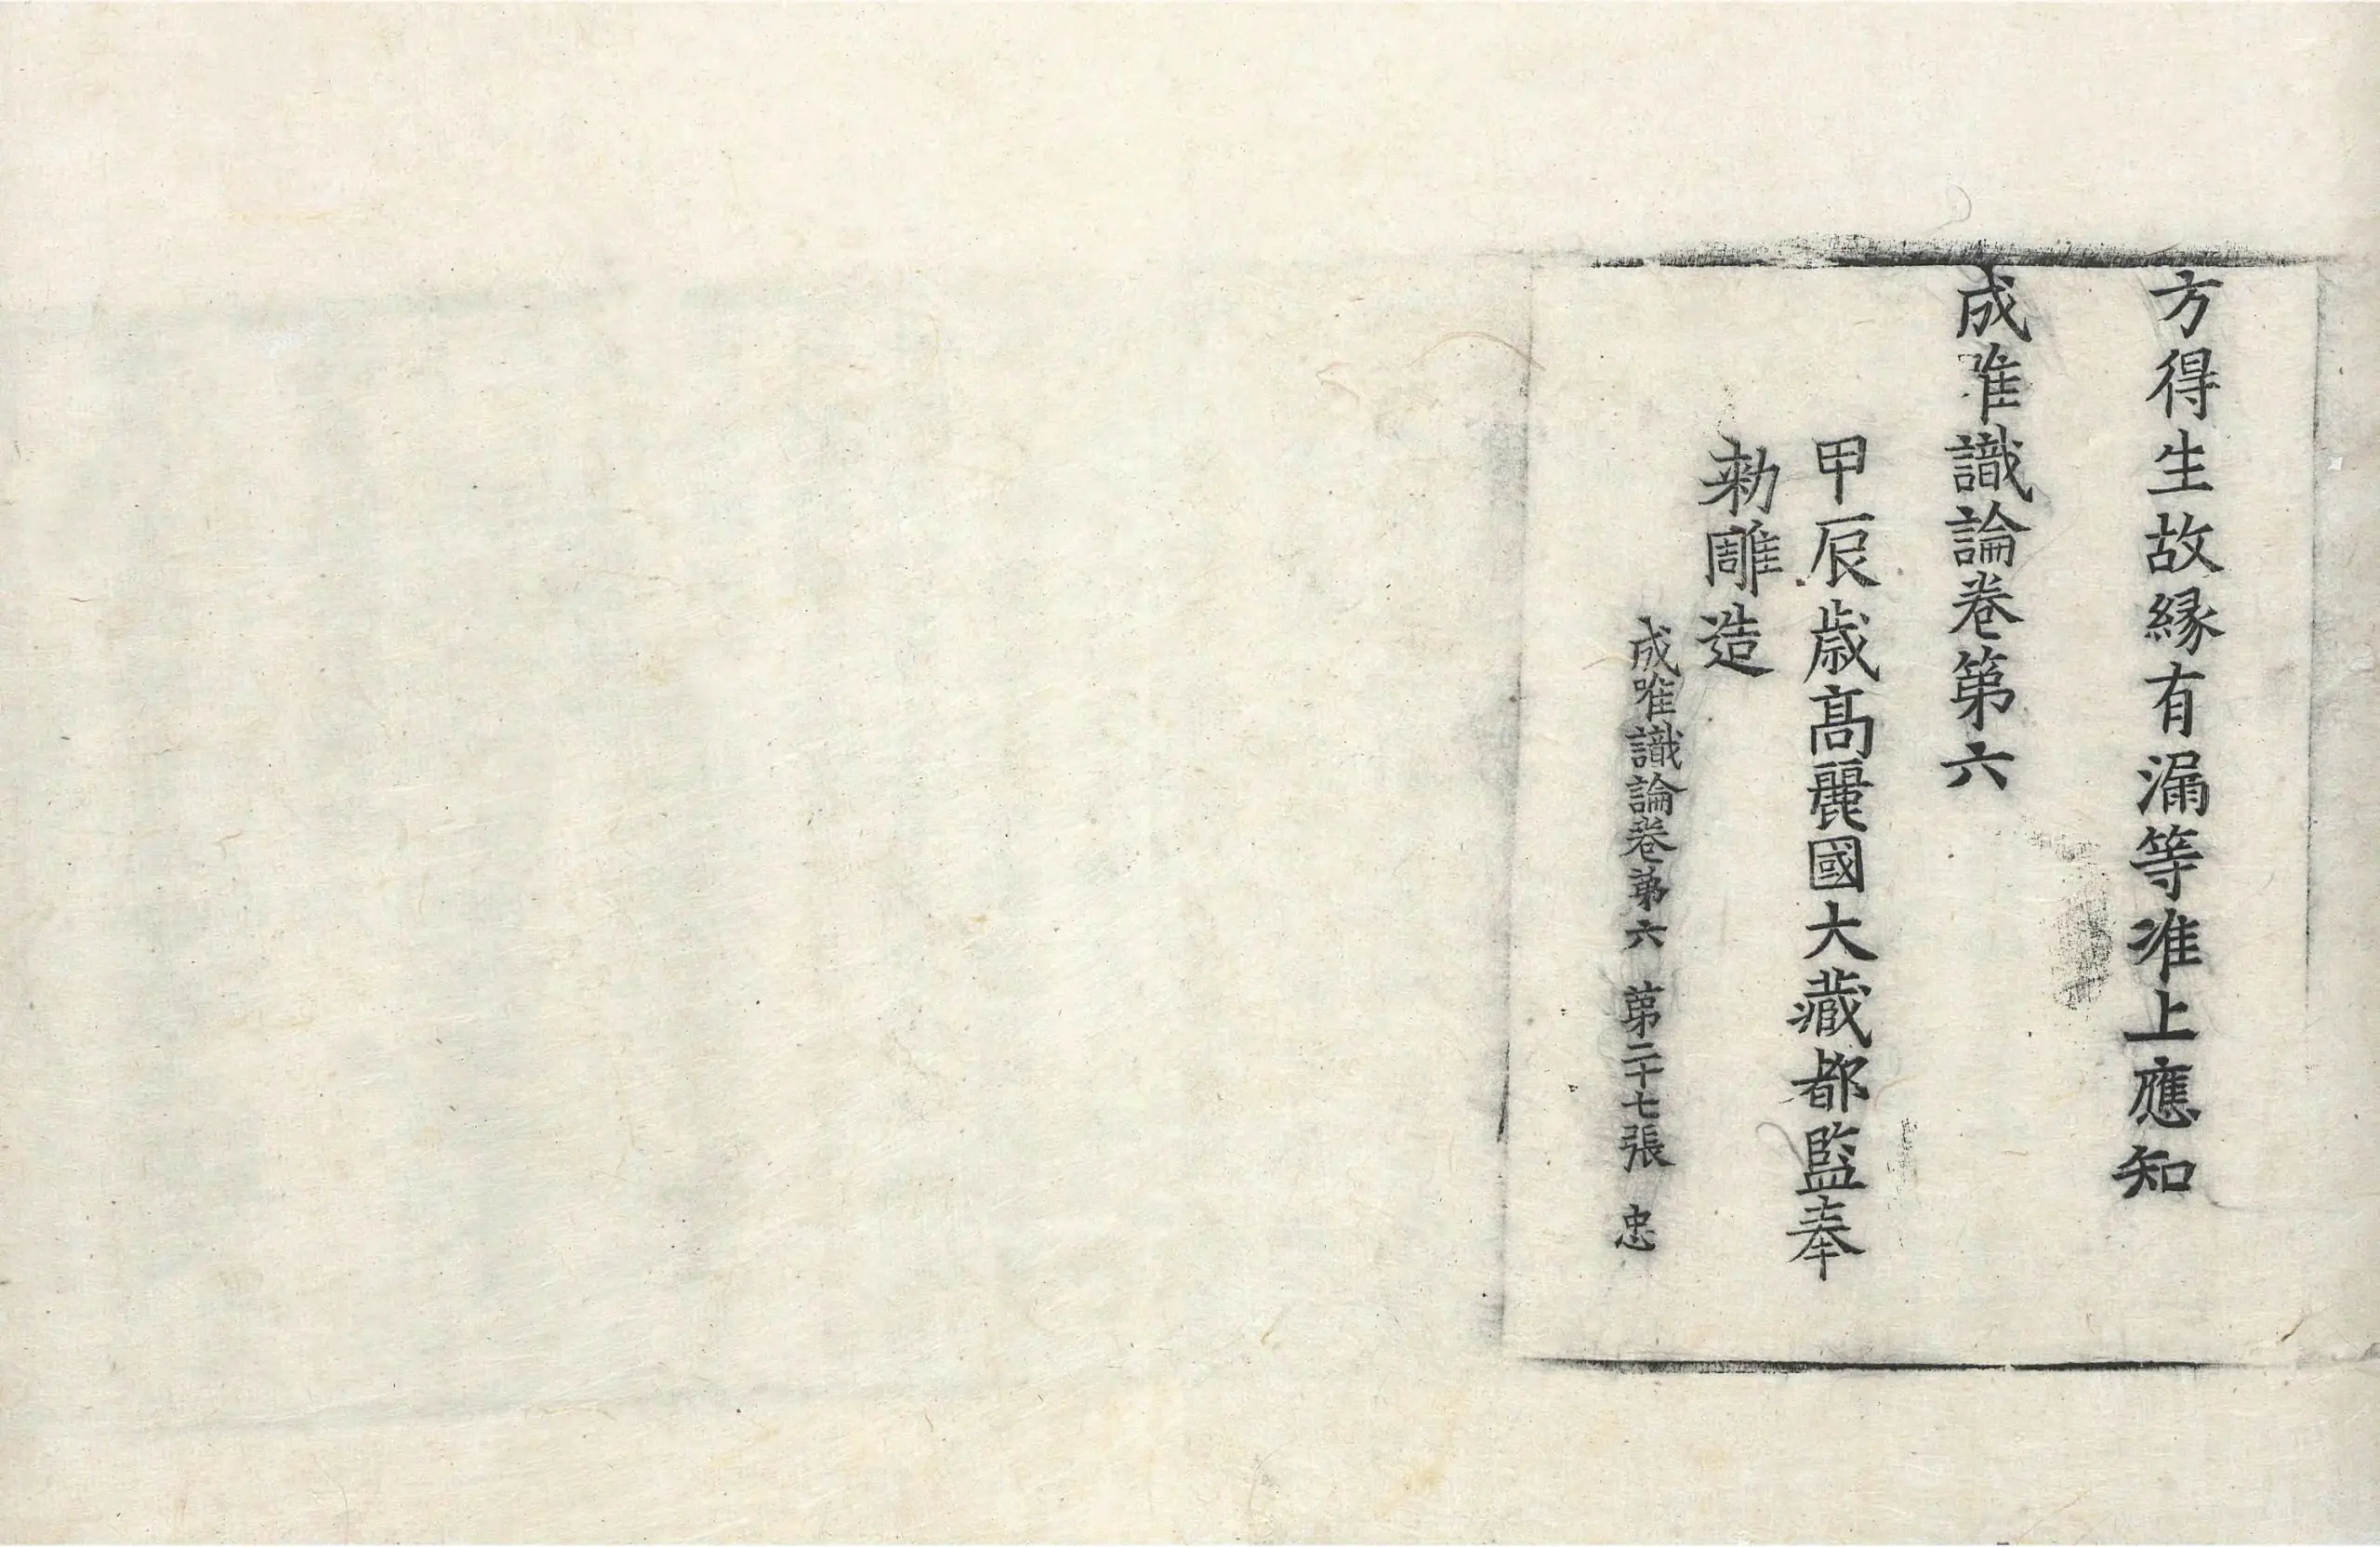 方得生故縁有漏等准上應知
成唯識論卷第六
甲辰歲高麗國大藏都監奉
勅雕造
成唯識論卷第六 第二十七張 忠